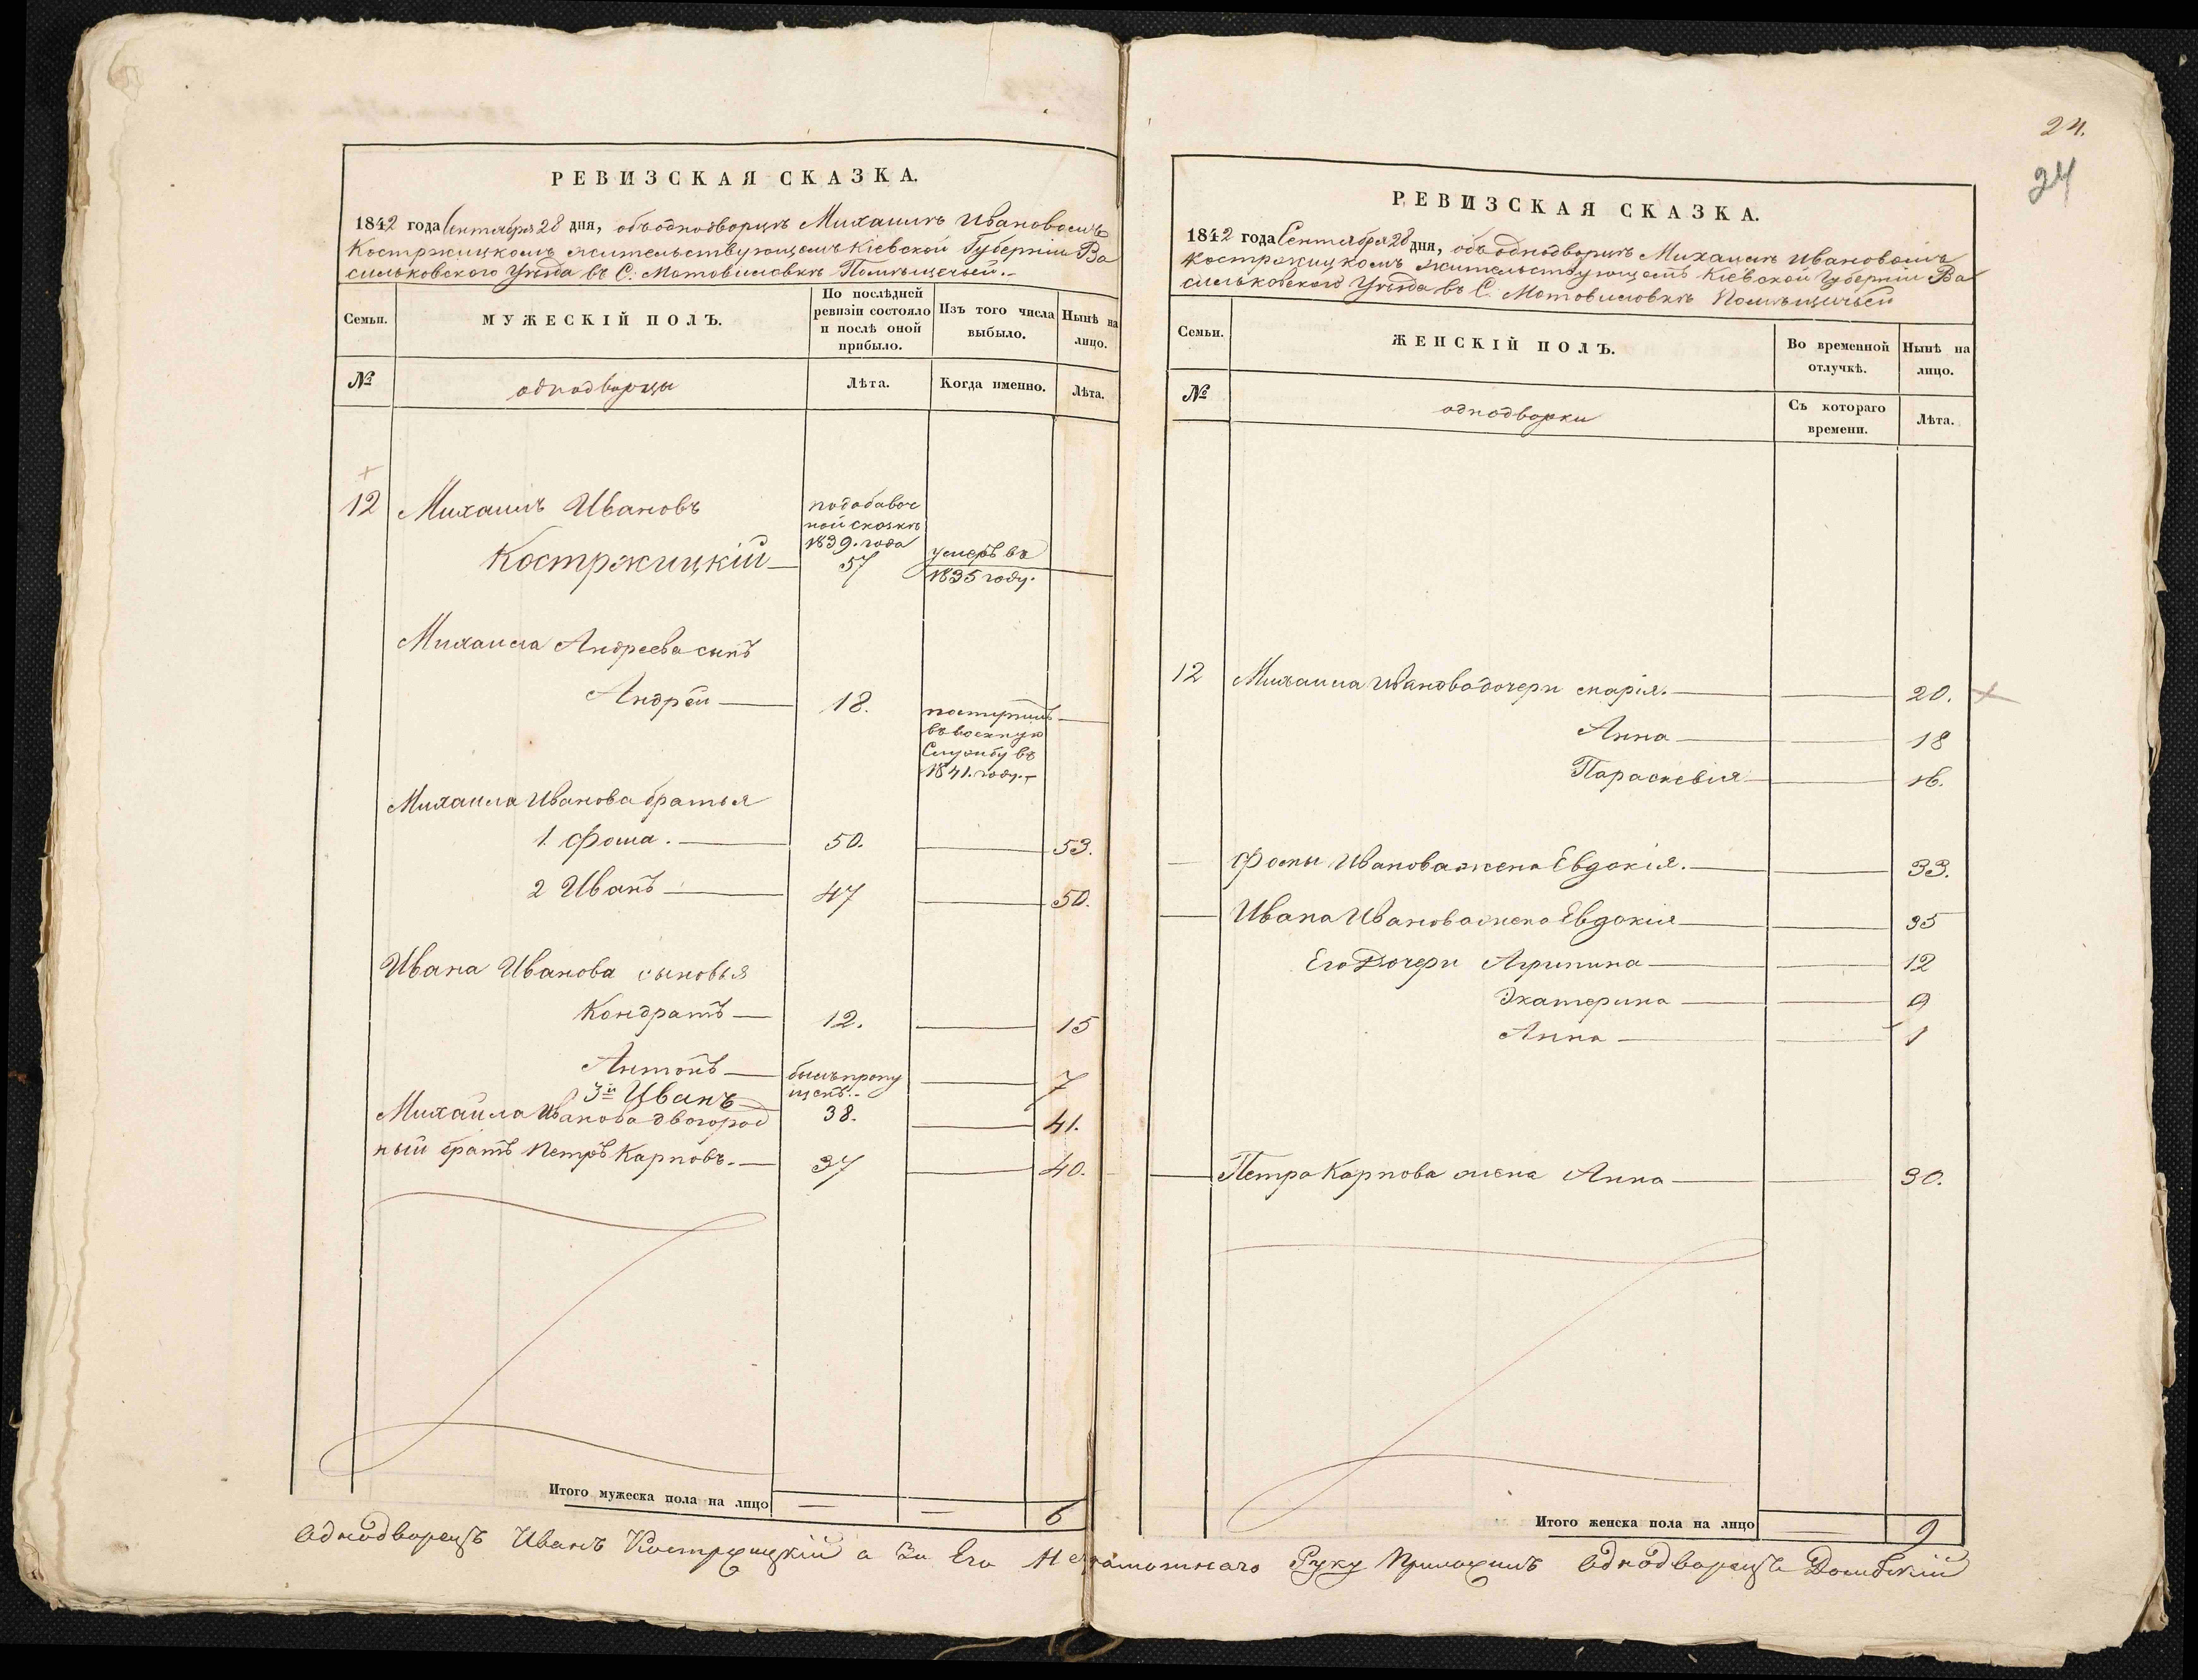 РЕВИЗСКАЯ СКАЗКА.
1842 года Сентября 28 дня, объ однодворцѣ Михаилѣ Ивановомъ
Костржицкомъ жительствующемъ Кіевской Губерніи Ва
сильковского Уѣзда въ С. Мотовиловкѣ Помѣщичьей.
Семьи.
МУЖЕСКІЙ ПОЛЪ.
По послѣдней
ревизіи состояло
и послѣ оной
прибыло.
Изъ того числа
выбыло.
Нынѣ на
лицо.
№
однодворцы
Лѣта.
Когда именно.
Лѣта.
12 Михаилъ Ивановъ
Костржицкій
по добавоч
ной сказкѣ
1839. года
57
умеръ въ
1835 году.
Михаила Андреева сынъ
Андрей 18.
поступилъ
въ военную
Службу въ
1841. году.
Михаила Иванова братья
1. Фома. 50. 53.
2 Иванъ 47 50.
Ивана Иванова сыновья
Кондратъ 12. 15
Антонъ былъ пропу
щенъ. 7
3й Иванъ 38. 41.
Михаила Иванова двоюрод
ный братъ Петръ Карповъ. 37 40.
Итого мужеска пола на лицо — — 6
24.
24
РЕВИЗСКАЯ СКАЗКА.
1842 года Сентября 28 дня, объ однодворцѣ Михаилѣ Ивановомъ
Костржицкомъ жительствующемъ Кіевской Губерніи Ва
сильковского Уѣзда въ С. Мотовиловкѣ Помѣщичьей
Семьи.
ЖЕНСКІЙ ПОЛЪ.
Во временной
отлучкѣ.
Нынѣ на
лицо.
№
однодворки
Съ котораго
времени.
Лѣта.
12 Михаила Иванова дочери Марія. 20.
Анна 18
Параскевія 16.
Фомы Иванова жена Евдокія. 33.
Ивана Иванова жена Евдокія 35
Его Дочери Агрипина 12
Екатерина 9
Анна 1
Петра Карпова жена Анна 30.
Итого женска пола на лицо — 9
Однодворецъ Иванъ Костржицкій а за Его Неграмотнаго Руку Приложилъ Однодворецъ